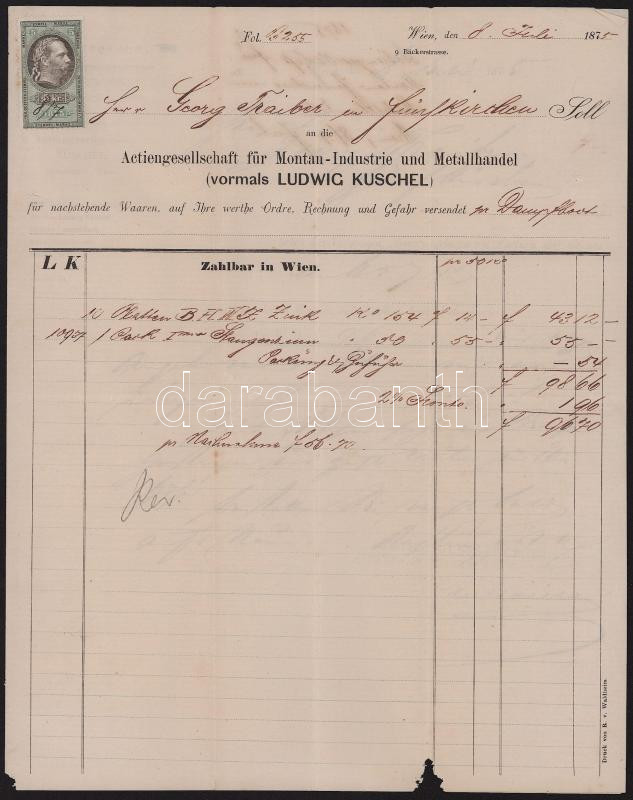 Fol. 255 Wien, den 8. Juli 1875
9 Bäckerstrasse.
5 5
8/7
Herr Georg Traiber in Fünfkirchen Soll
an die
Actiengesellschaft für Montan-Industrie und Metallhandel
(vormals LUDWIG KUSCHEL)
für nachstehende Waaren, auf Ihre werthe Ordre, Rechnung und Gefahr versendet pr Dampfboot
L K Zahlbar in Wien.
10 Platten B. H. W. H. Zink Ko 154 f 14 — f 43 12 —
1 Stangenzinn " 50 " 55 — " 55 —
Packung & Zufuhr " — 54
f 98 66
2% Sconto. " 1 96
f 96 70
pr Nachnahme f 96.70.
Rev.
darabanth
Druck von R. v. Waldheim